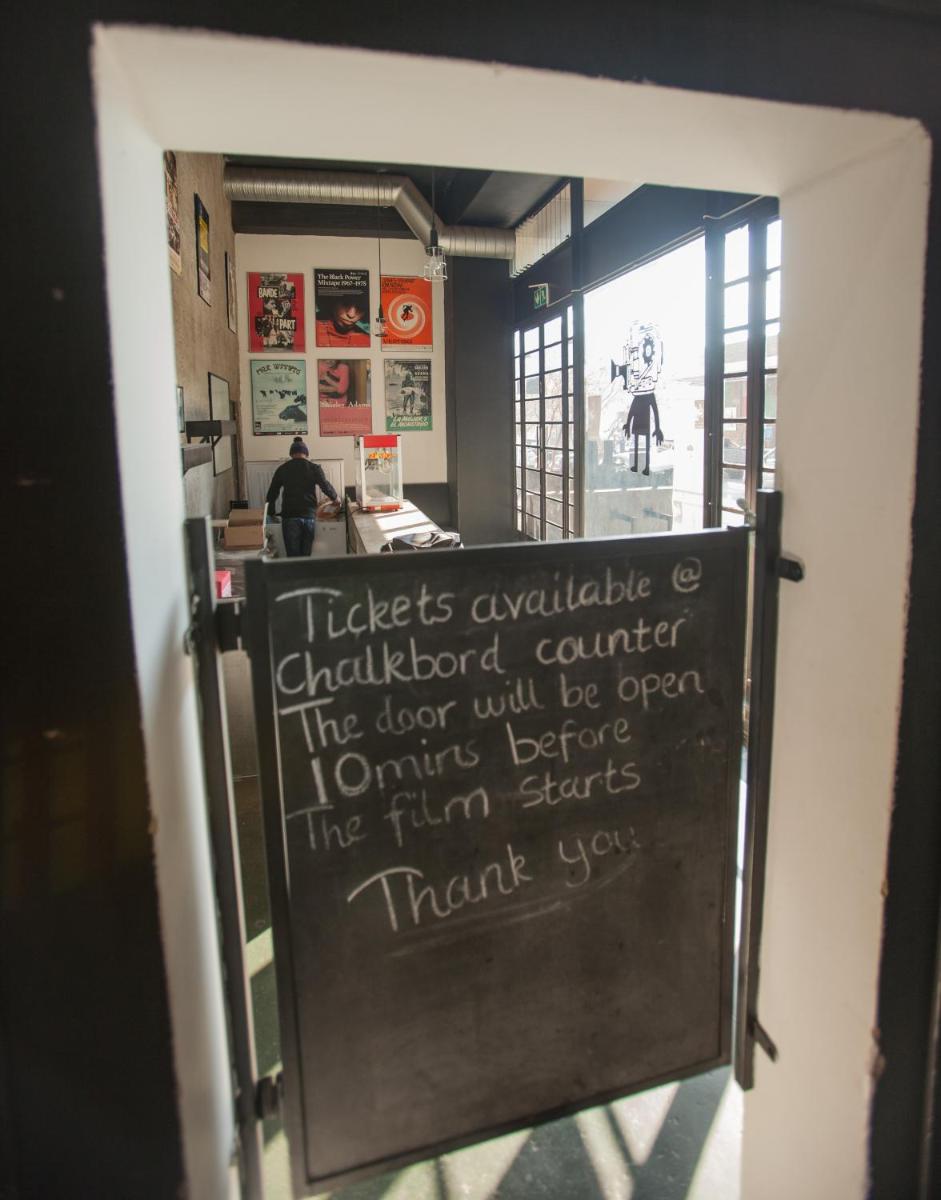 BANDE
PART
The Black Power
Mixtape 1967-1975
Shirley Adams
LA MUJER Y
EL MONSTRUO
Tickets available @
Chalkbord counter
The door will be open
10mins before
The film starts
Thank you